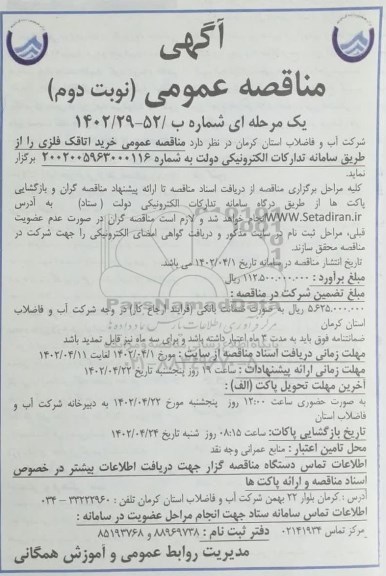 آگهی
مناقصه عمومی (نوبت دوم)
یک مرحله ای شماره ب /۵۲-۱۴۰۲/۲۹
شرکت آب و فاضلاب استان کرمان در نظر دارد مناقصه عمومی خرید اتاقک فلزی را از
طریق سامانه تدارکات الکترونیکی دولت به شماره ۲۰۰۲۰۰۵۹۶۳۰۰۰۱۱۶ برگزار
نماید.
کلیه مراحل برگزاری مناقصه از دریافت اسناد مناقصه تا ارائه پیشنهاد مناقصه گران و بازگشایی
پاکت ها از طریق درگاه سامانه تدارکات الکترونیکی دولت (ستاد) به آدرس
WWW.Setadiran.ir انجام خواهد شد و لازم است مناقصه گران در صورت عدم عضویت
قبلی، مراحل ثبت نام در سایت مذکور و دریافت گواهی امضای الکترونیکی را جهت شرکت در
مناقصه محقق سازند.
تاریخ انتشار مناقصه در سامانه تاریخ ۱۴۰۲/۰۴/۱ می باشد.
مبلغ برآورد : ۱۱۲.۵۰۰.۰۰۰.۰۰۰ ریال
مبلغ تضمین شرکت در مناقصه :
۵.۶۲۵.۰۰۰.۰۰۰ ریال به صورت ضمانت بانکی (فرایند ارجاع کار) در وجه شرکت آب و فاضلاب
استان کرمان
ضمانتنامه فوق باید به مدت ۳ ماه اعتبار داشته باشد و برای سه ماه نیز قابل تمدید باشد
مهلت زمانی دریافت اسناد مناقصه از سایت : مورخ ۱۴۰۲/۰۴/۱ لغایت ۱۴۰۲/۰۴/۱۱
مهلت زمانی ارائه پیشنهادات : ساعت ۱۹ روز پنجشنبه تاریخ ۱۴۰۲/۰۴/۲۲
آخرین مهلت تحویل پاکت (الف) :
به صورت حضوری ساعت ۱۲:۰۰ روز پنجشنبه مورخ ۱۴۰۲/۰۴/۲۲ به دبیرخانه شرکت آب و
فاضلاب استان
تاریخ بازگشایی پاکات: ساعت ۰۸:۱۵ روز شنبه تاریخ ۱۴۰۲/۰۴/۲۴
محل تامین اعتبار : منابع عمرانی وجه نقد
اطلاعات تماس دستگاه مناقصه گزار جهت دریافت اطلاعات بیشتر در خصوص
اسناد مناقصه و ارائه پاکت ها
آدرس : کرمان بلوار ۲۲ بهمن شرکت آب و فاضلاب استان کرمان تلفن : ۳۳۲۲۲۹۶۰ - ۰۳۴
اطلاعات تماس سامانه ستاد جهت انجام مراحل عضویت در سامانه :
مرکز تماس ۰۲۱۴۱۹۳۴ دفتر ثبت نام : ۸۸۹۶۹۷۳۸ و ۸۵۱۹۳۷۶۸
مدیریت روابط عمومی و آموزش همگانی